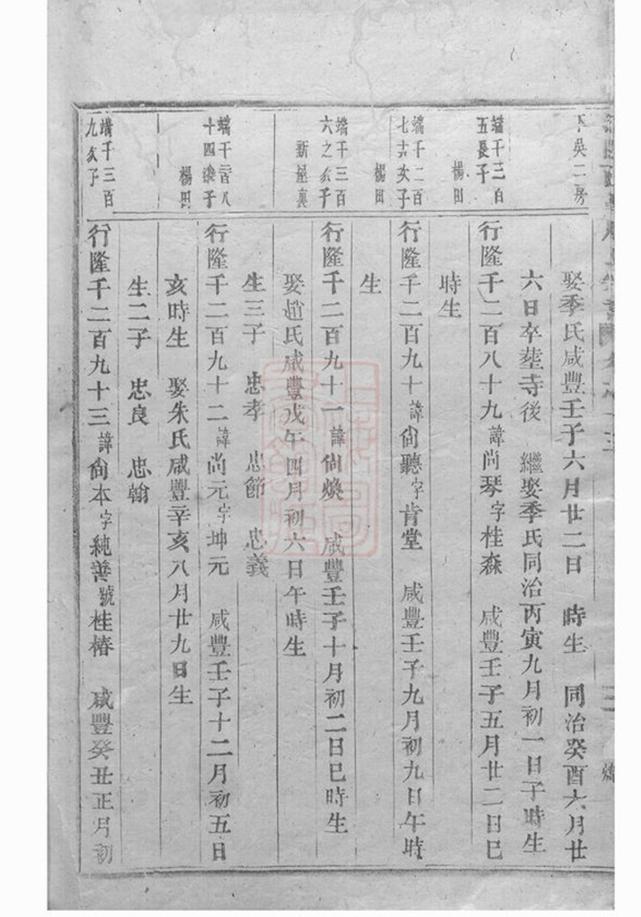 下吳二房
娶季氏咸豐壬子六月廿二日 時生 同治癸酉六月廿
六日卒塟寺後 繼娶季氏同治丙寅九月初一日子時生
端千三百
五長子
楊田
行隆千二百八十九諱尚琴字桂森 咸豐壬子五月廿二日巳
時生
端千二百
七十次子
楊田
行隆千二百九十諱尙聽字肯堂 咸豐壬子九月初九日午時
生
端千三百
六之次子
新屋裏
行隆千二百九十一諱尙煥 咸豐壬子十月初二日巳時生
娶趙氏咸豐戊午四月初六日午時生
生三子 忠孝 忠節 忠義
端千二百八
十四 子
楊田
行隆千二百九十二諱尚元字坤元 咸豐壬子十二月初五日
亥時生 娶朱氏咸豐辛亥八月廿九日生
生二子 忠良 忠翰
端千三百
九次子
行隆千二百九十三諱尙本字純善號桂椿 咸豐癸丑正月初